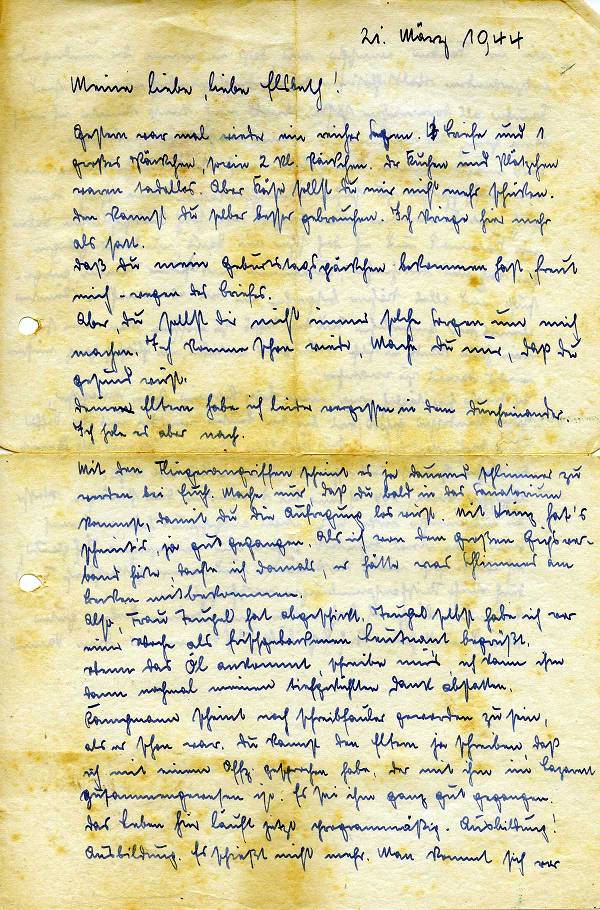 21. März 1944
Meine liebe, liebe Elsbeth!
Gestern war mal wieder ein reicher Segen. Briefe und 1
großes Päckchen, sowie 2 kl. Päckchen. Der Kuchen und Plätzchen
waren tadellos. Aber Käse sollst du mir nicht mehr schicken.
Den kannst Du selber besser gebrauchen. Ich kriege hier mehr
als satt.
Daß Du mein Geburtstagspäckchen bekommen hast, freut
mich wegen des Briefes.
Aber, du sollst dir nicht immer solche Sorgen um mich
machen. Ich komme schon wieder, Mache Du nur, daß Du
gesund wirst.
Deinen Eltern habe ich leider vergessen in dem Durcheinander.
Ich hole es aber nach.
Mit den Fliegerangriffen scheint es ja dauernd schlimmer zu
werden bei Euch. Mache nur, daß du bald in das Sanatorium
kommst, damit Du die Aufregung los wirst. Mit Heinz hat's
scheint's, ja gut gegangen. Als ich von dem großen
band hörte, dachte ich damals, er hätte was Schlimmes am
mitbekommen.
Also, Frau hat abgeschickt. selbst habe ich vor
einer Woche als frischgebackenen Leutnant begrüßt.
Wenn das Öl ankommt, schreibe mir's, ich kann ihm
dann nochmal meinen tiefgefühlten Dank abstatten.
scheint noch schreibfauler geworden zu sein,
als er schon war. Du kannst den Eltern ja schreiben, daß
ich mit einem Offz. gesprochen habe, der mit ihm im Lazarett
zusammengewesen ist. Es sei ihm ganz gut gegangen.
Das Leben hier läuft jetzt programmäßig. Ausbildung!
Ausbildung. Es schießt nicht mehr. Man kommt sich vor